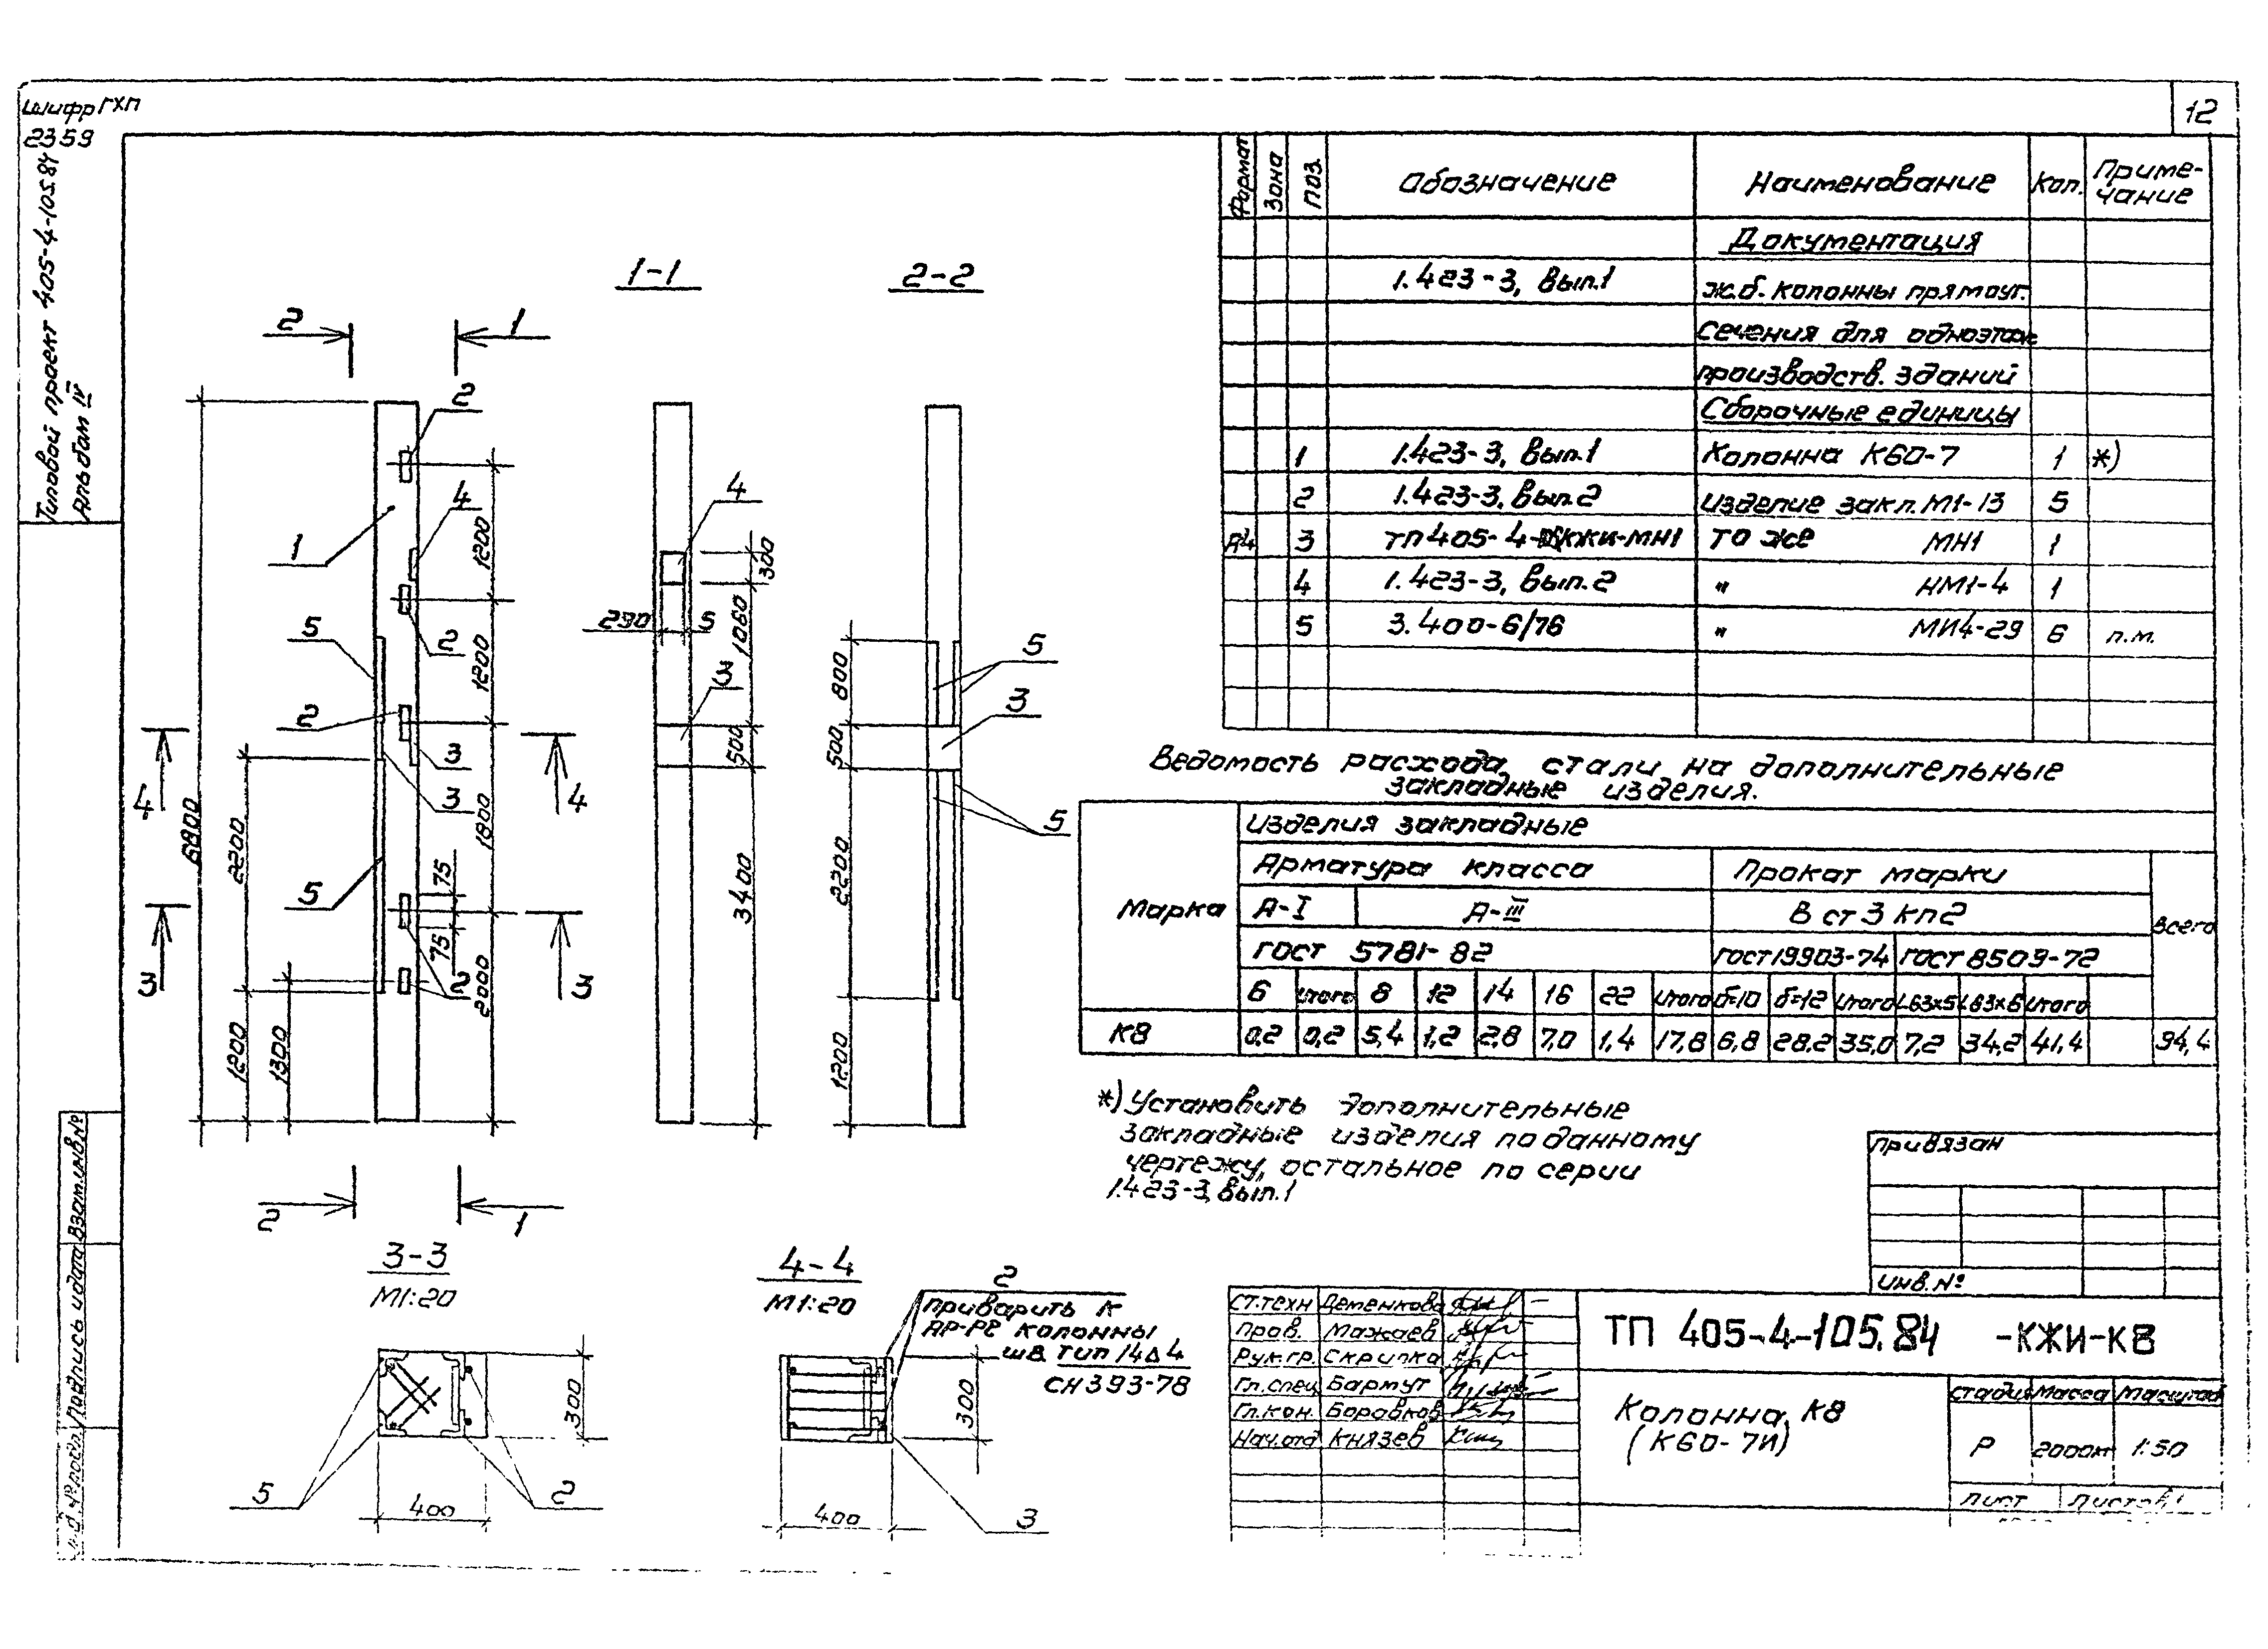 Шифр ГХП
2359
12
Типовой проект 405-4-105.84
Альбом IV
Взат.инв.№
Подпись и дата
1-1
2-2
2
1
2
4
1
5
2
2
3
3
5
2
4
4
3
3
6800
2200
1200
1300
1200
1200
1800
2000
75
75
2
1
4
300
290
5
1060
3
500
3400
5
3
5
800
500
2200
1200
3-3
М1:20
300
400
5
2
4-4
М1:20
2
приварить к
АР-РЕ колонны
шв. тип 14Δ4
СН 393-78
300
400
3
Формат Зона Поз. Обозначение Наименование Кол. Приме-
чание
Документация
1.423-3, вып.1 ж.б. колонны прямоуг.
сечения для одноэтаж.
производств. зданий
Сборочные единицы
1 1.423-3, вып.1 Колонна К60-7 1 *)
2 1.423-3, вып.2 изделие закл. М1-13 5
А4 3 ТП 405-4- КЖИ-МН1 то же МН1 1
4 1.423-3, вып.2 " НМ1-4 1
5 3.400-6/76 " МИ4-29 6 п.м.
Ведомость расхода стали на дополнительные
закладные изделия.
Марка Изделия закладные
Арматура класса Прокат марки Всего
А-I А-III В ст 3 кп2
ГОСТ 5781-82 ГОСТ 19903-74 ГОСТ 8509-72
6 Итого 8 12 14 16 22 Итого δ=10 δ=12 Итого L63x5 L63x6 Итого
К8 0,2 0,2 5,4 1,2 2,8 7,0 1,4 17,8 6,8 28,2 35,0 7,2 34,2 41,4 94,4
*) Установить дополнительные
закладные изделия по данному
чертежу, остальное по серии
1.423-3, вып.1
Привязан
Инв.№
Ст.техн Деменкова
Пров. Мажаев
Рук.гр. Скрипка
Гл.спец Бармут
Гл.кон. Боровков
Нач.отд Князев
ТП 405-4-105.84 -КЖИ-К8
Колонна К8
(К60-7И)
Стадия Масса Масштаб
Р 2000кг 1:50
Лист Листов 1